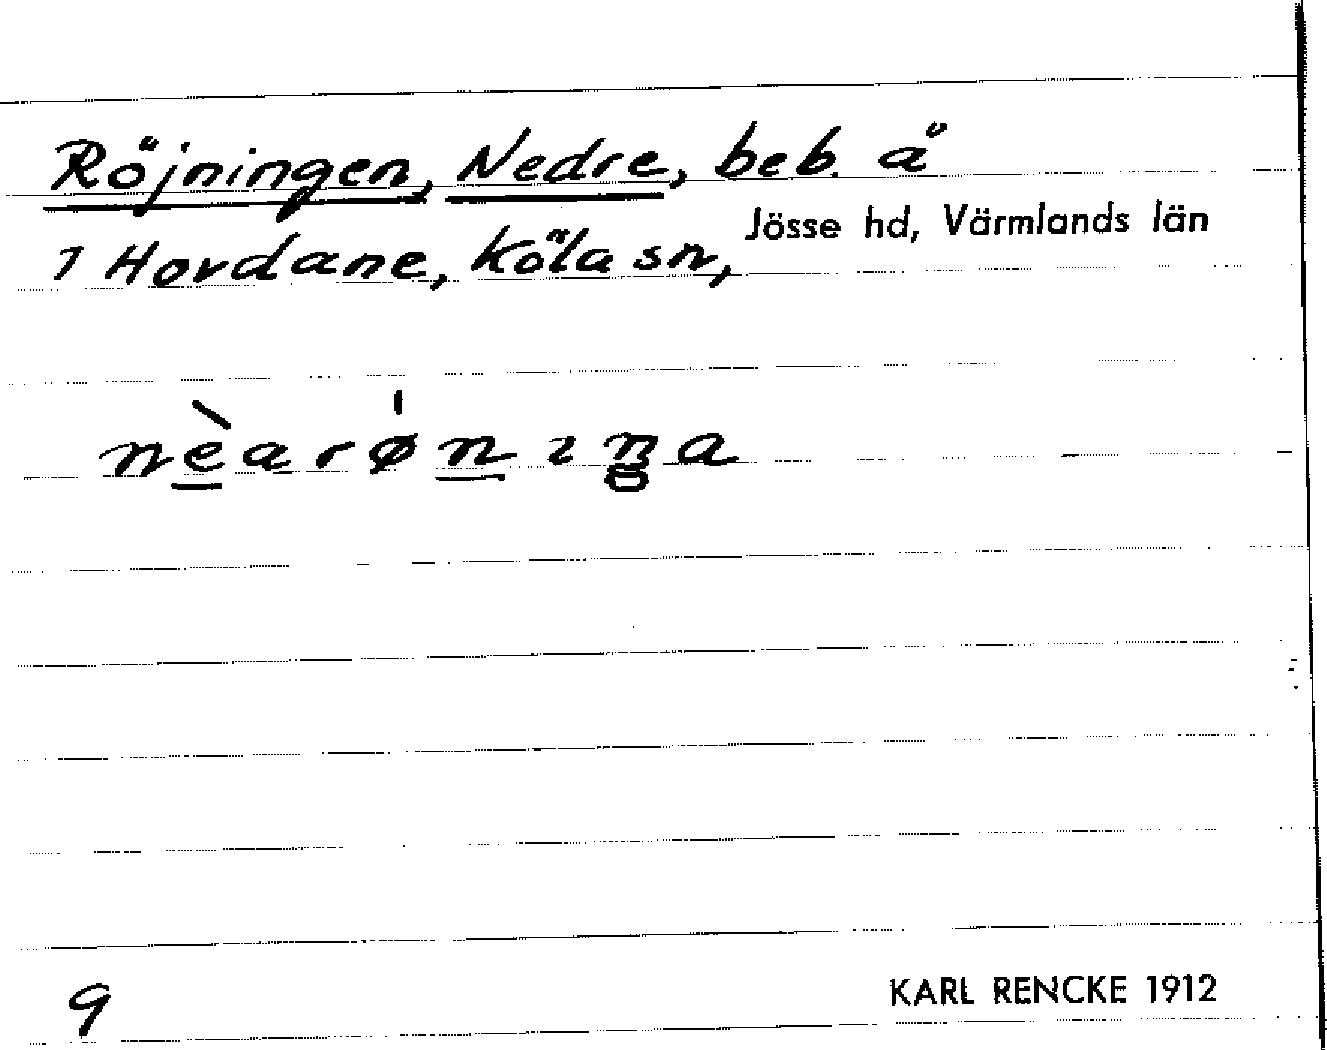 Röjningen, Nedre, beb. å
1 Hordane, Köla sn, Jösse hd, Värmlands län
nèarønıŋa
9
KARL RENCKE 1912